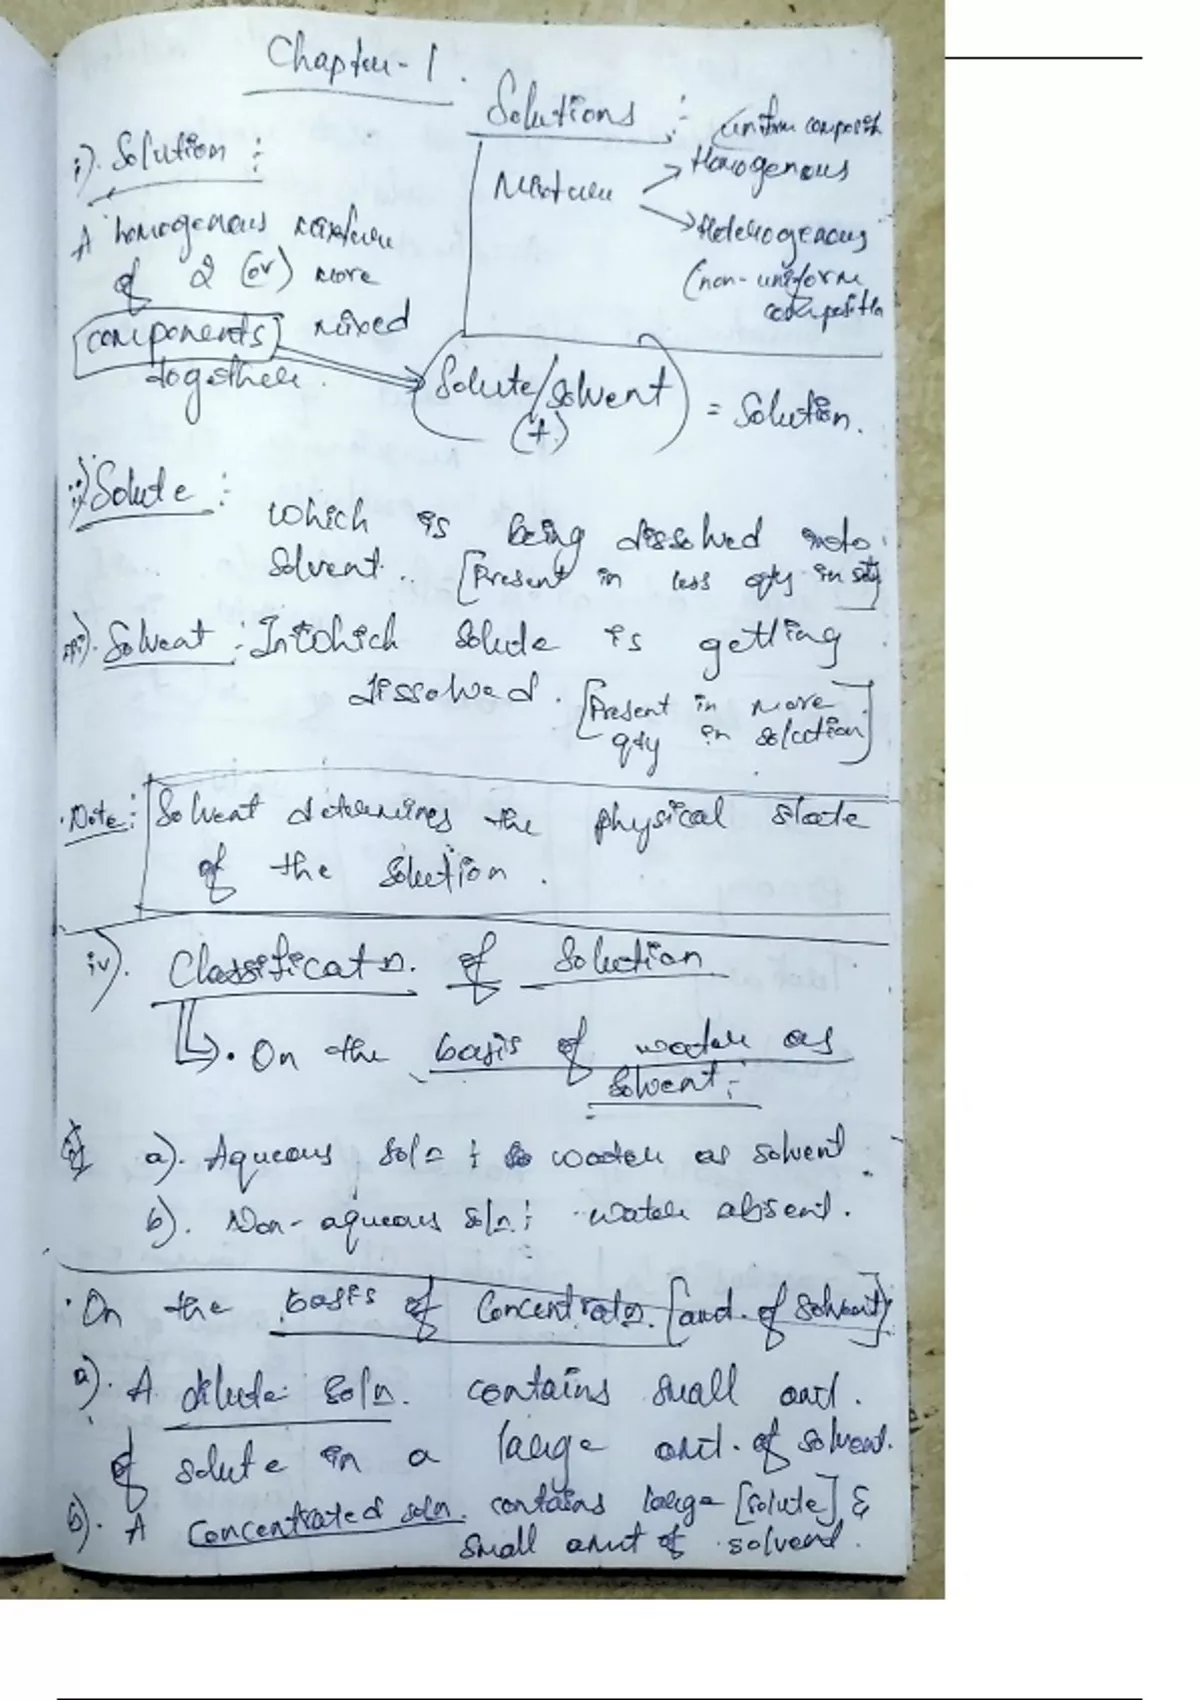 Chapter-1.
Solutions :-
uniform composit
Mixture
Homogenous
Heterogenous
(non-uniform
composition
i). Solution :
A homogenous mixture
of 2 (or) more
components mixed
together.
(Solute/solvent) = Solution.
(+)
ii) Solute :
which is being dissolved into
solvent.. [Present in less qty in soln]
iii). Solvent :- In which solute is getting
dissolved. [Present in more
qty in solution]
Note: Solvent determines the physical state
of the solution.
iv). Classificatn. of Solution
. On the basis of water as
solvent :-
a). Aqueous soln : water as solvent.
b). Non-aqueous soln : water absent.
. On the basis of Concentratn. [amt. of solvent]
a). A dilute soln. contains small amt.
of solute in a large amt. of solvent.
b). A Concentrated soln. contains large [solute] &
small amnt of solvent.